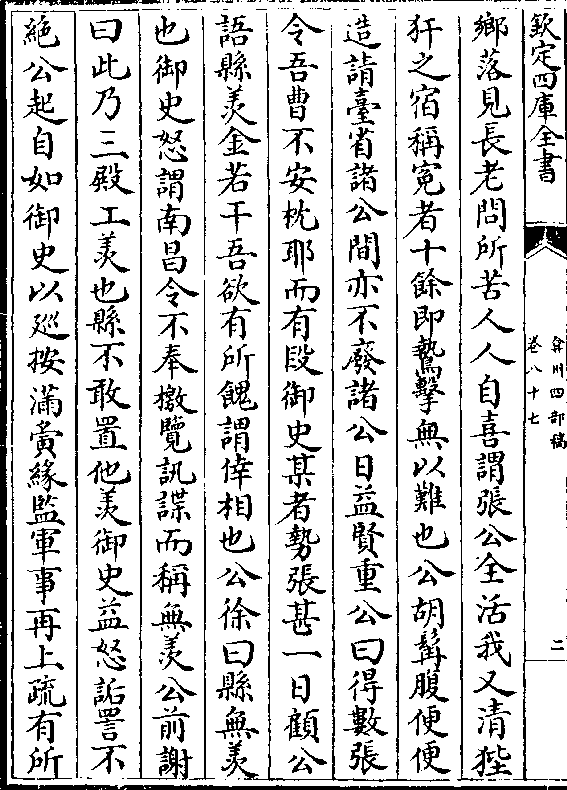 欽定四庫全書
弇州四部稿
卷八十七
二
鄉落見長老問所苦人人自喜謂張公全活我又清狴
犴之宿稱寃者十餘即鷙擊無以難也公胡髯腹便便
造請臺省諸公間亦不廢諸公日益賢重公曰得數張
令吾曹不安枕耶而有段御史某者勢張甚一日顧公
語縣羨金若干吾欲有所餽謂倖相也公徐曰縣無羨
也御史怒謂南昌令不奉檄覽訊諜而稱無羨公前謝
曰此乃三殿工羨也縣不敢置他羨御史益怒詬詈不
絶公起自如御史以廵按滿夤緣監軍事再上疏有所